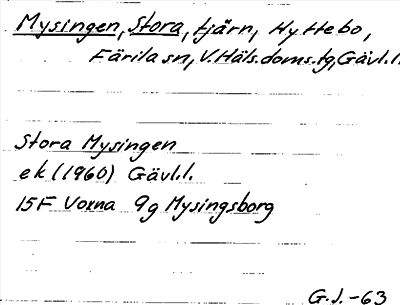 Mysingen, Stora, tjärn, Hyttebo,
Färila sn, V. Häls. doms.tg, Gävl.l.
Stora Mysingen
ek (1960) Gävl.l.
15F Voxna 9g Mysingsborg
G.J.-63